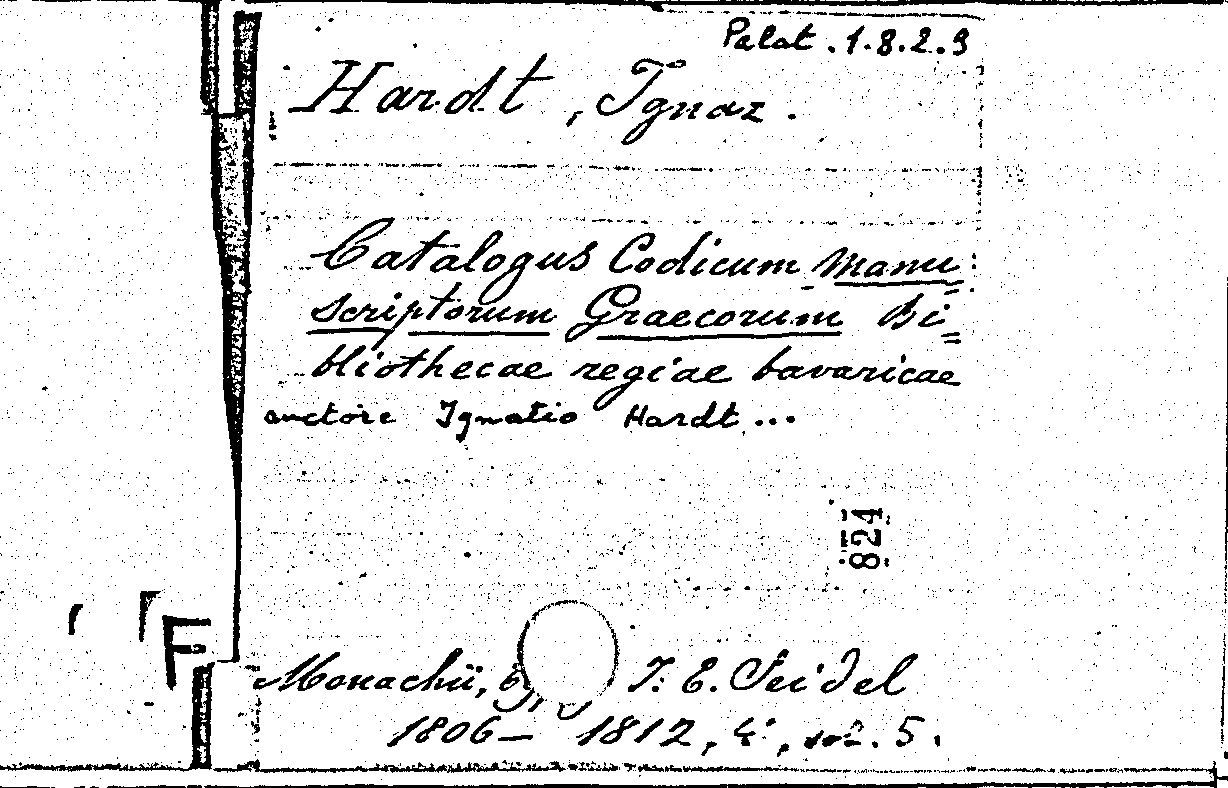 Palat. 1.8.2.9
Hardt, Ignaz.
Catalogus Codicum manu=
scriptorum Graecorum Bi=
bliothecae regiae bavaricae
auctore Ignatio Hardt...
824
F
Monachii, J. E. Seidel
1806-1812, 4°, vol. 5.